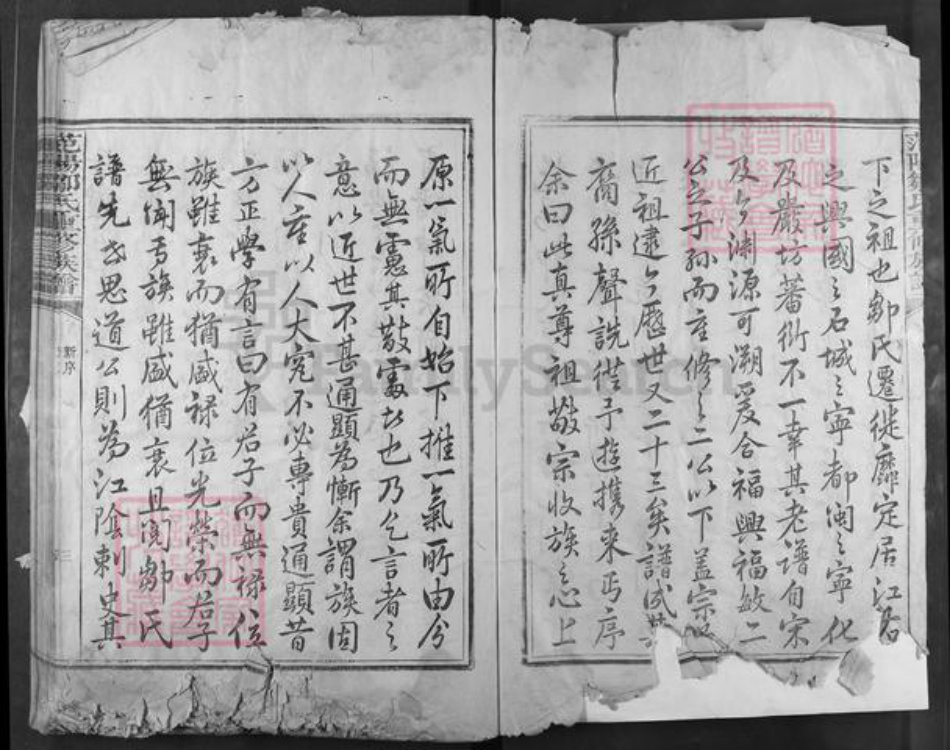 下之祖也鄒氏遷徙靡定居江右
之興國之石城之寧都閩之寧化
及嚴坊蕃衍不一幸其老譜自宋
及今淵源可溯爰合福興福敏二
公之子孫而重修之二公以下蓋宗
近祖逮今歷世又二十三矣譜成
裔孫聲詵從予遊攜來丐序
余曰此真尊祖敬宗收族之心上
原一氣所自始下推一氣所由分
而無慮其散處者也乃乞言者之
意以近世不甚通顯為慚余謂族固
以人重以人大究不必專貴通顯昔
方正學有言曰有君子而無祿位
族雖衰而猶盛祿位光榮而君子
無聞焉族雖盛猶衰且閱鄒氏
譜先世思道公則為江陰刺史其
范陽鄒氏重修族譜
新序
三
FamilySearch